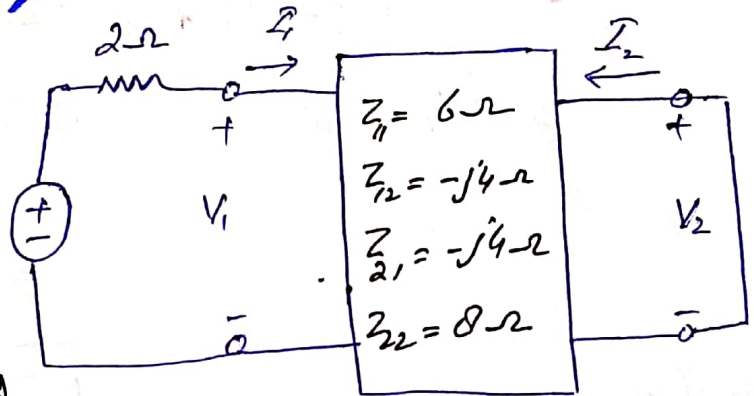 2Ω
I₁
I₂
+
-
+
V₁
-
Z₁₁ = 6Ω
Z₁₂ = -j4Ω
Z₂₁ = -j4Ω
Z₂₂ = 8Ω
+
V₂
-